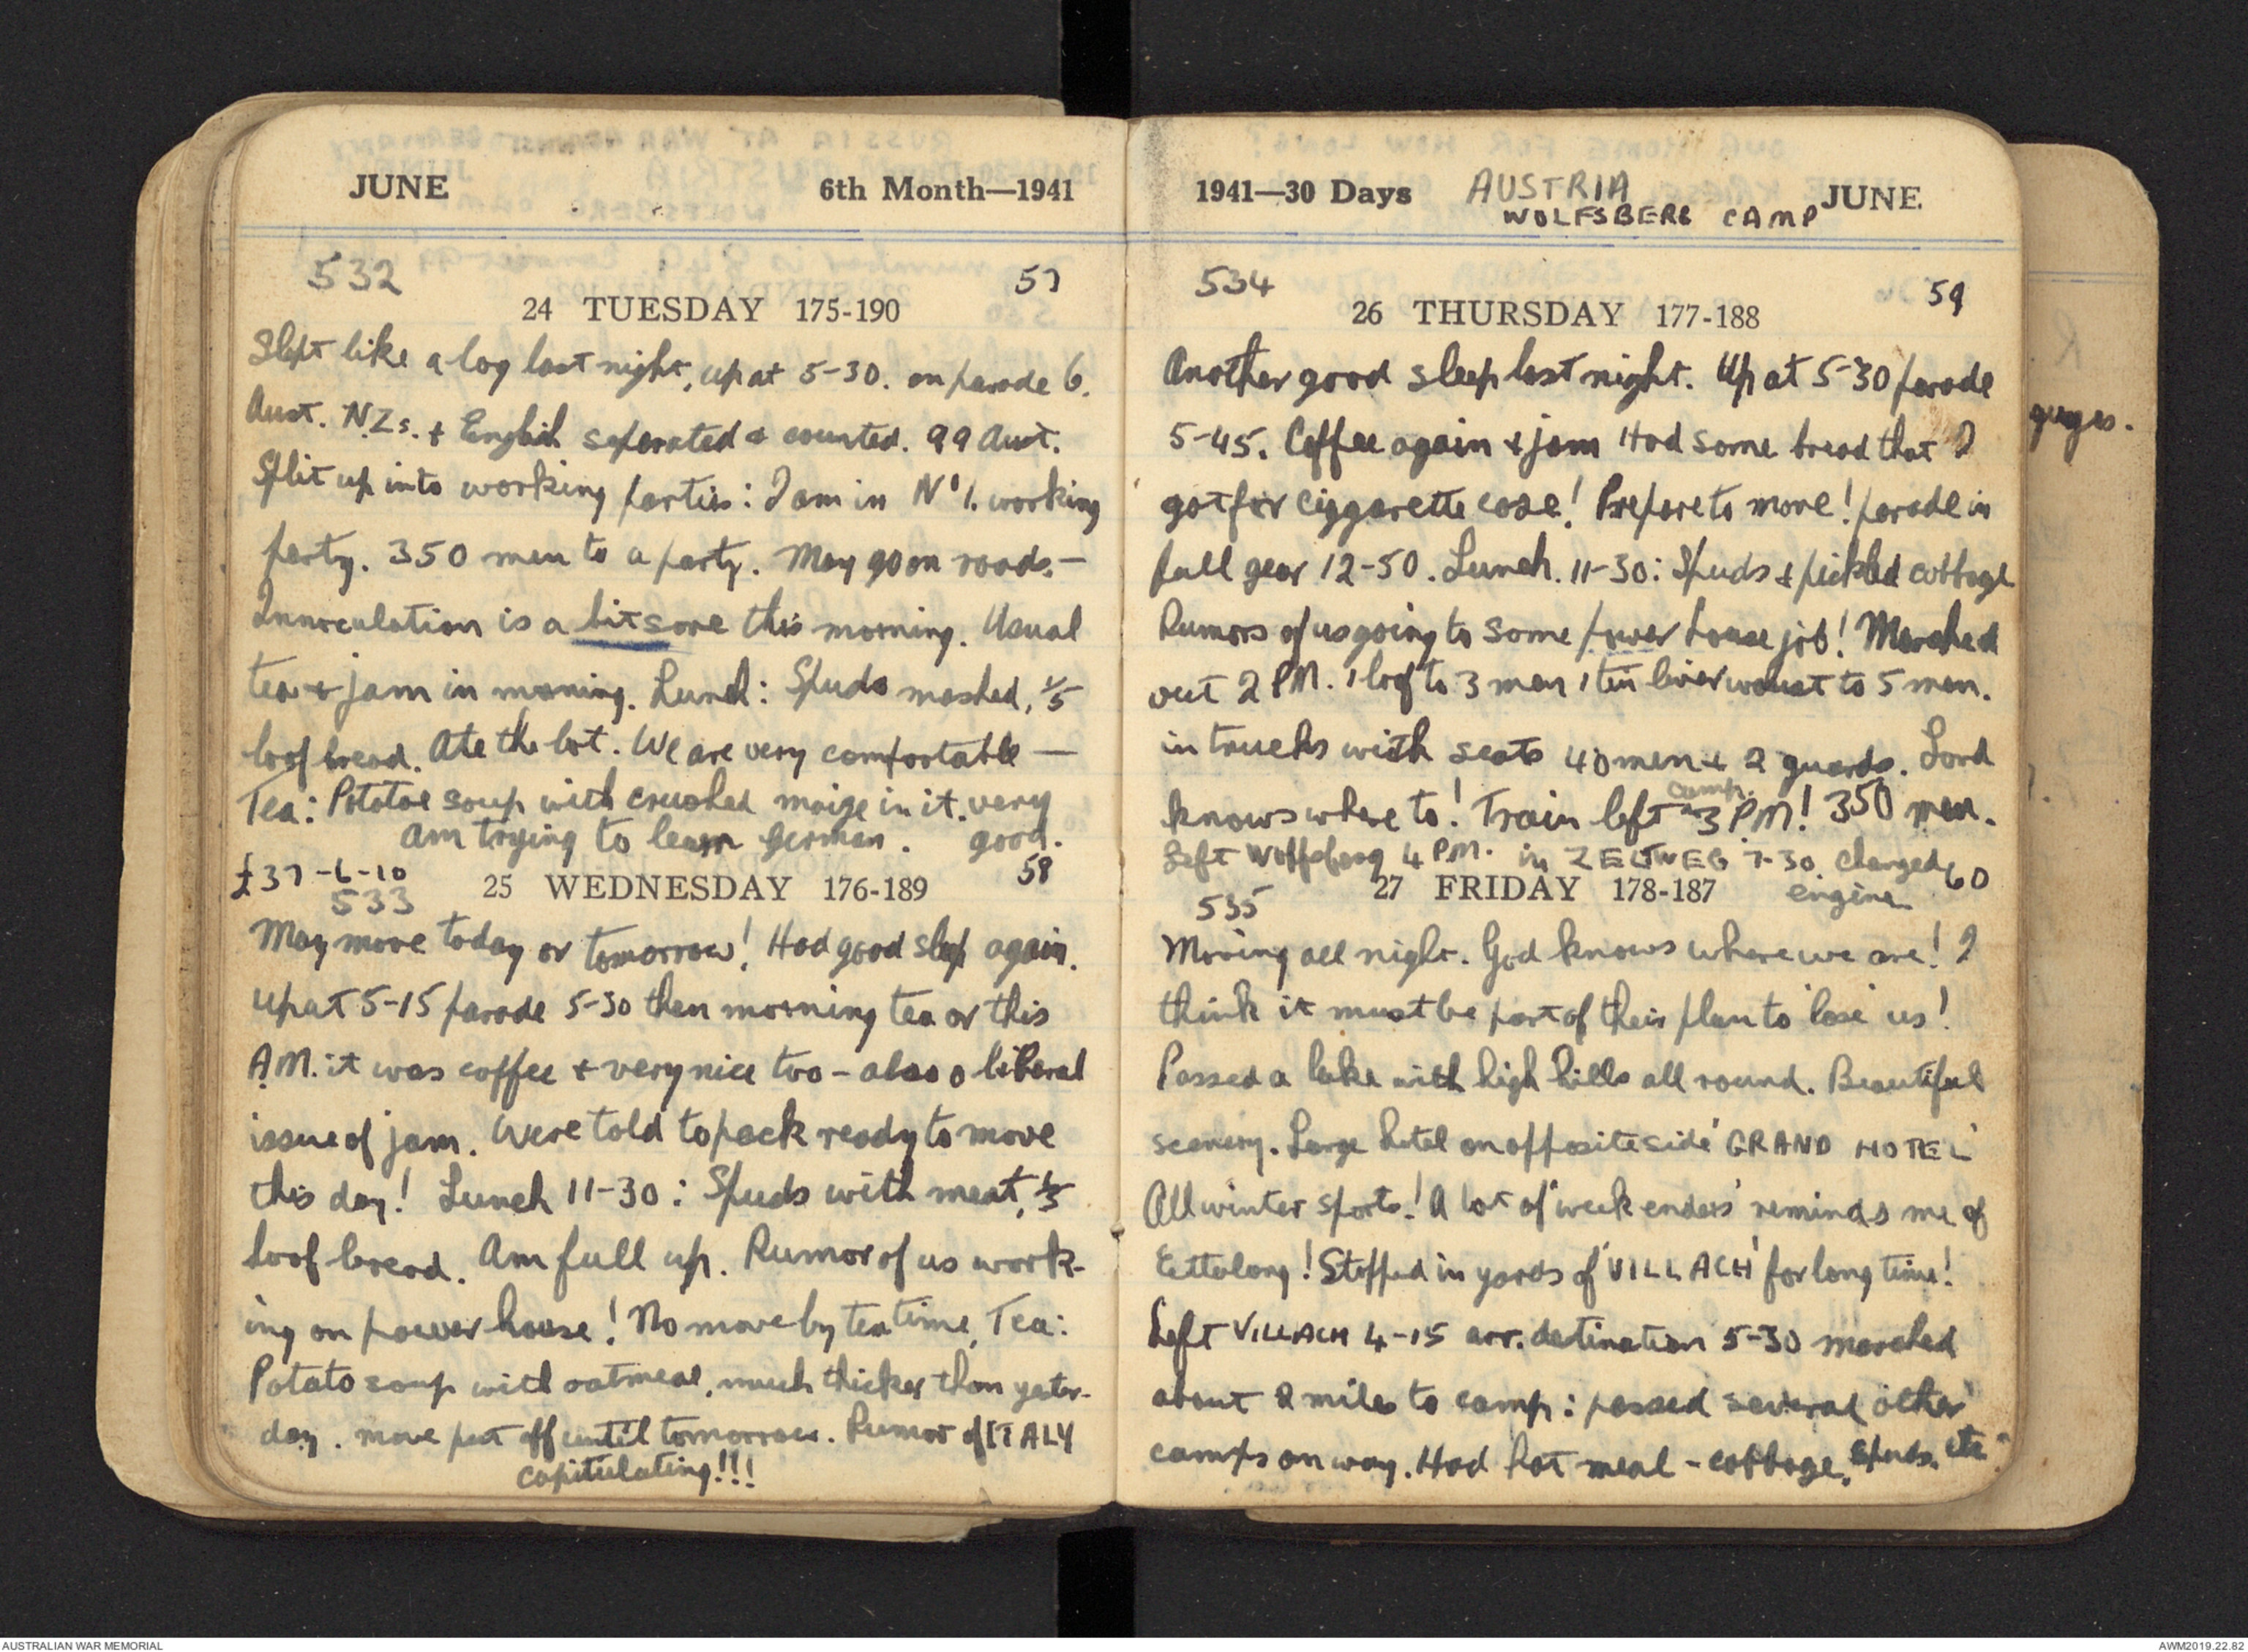 JUNE 6th Month—1941
532 57
24 TUESDAY 175-190
Slept like a log last night, up at 5-30. on parade 6.
Aust. N.Zs. + English seperated & counted. 99 Aust.
Split up into working parties: I am in No 1. working
party. 350 men to a party. May go on roads.—
Innoculation is a bit sore this morning. Usual
tea + jam in morning. Lunch: Spuds mashed, 1/5
loaf bread. Ate the lot. We are very comfortable —
Tea: Potatoe soup with crushed maize in it. very
am trying to learn German. good.
£37-6-10 58
533 25 WEDNESDAY 176-189
May move today or tomorrow! Had good sleep again.
up at 5-15 parade 5-30 then morning tea or this
A.M. it was coffee + very nice too - also a liberal
issue of jam. Were told to pack ready to move
this day! Lunch 11-30: Spuds with meat, 1/5
loaf bread. Am full up. Rumor of us work-
ing on power house! No move by tea time, Tea:
Potato soup with oatmeal, much thicker than yester-
day. move put off until tomorrow. Rumor of ITALY
capitulating!!!
1941—30 Days AUSTRIA JUNE
WOLFSBERG CAMP
534 59
26 THURSDAY 177-188
Another good sleep last night. Up at 5-30 parade
5-45. Coffee again + jam Had some bread that I
got for ciggarette case! Prepare to move! parade in
full gear 12-50. Lunch. 11-30: Spuds + pickled cabbage
Rumors of us going to some power house job! Marched
out 2 PM. 1 loaf to 3 men 1 tin liverwurst to 5 men.
in trucks with seats 40 men + 2 guards. Lord
camp.
knows where to! Train left 3 P.M! 350 men.
Left Wolfsberg 4 PM. in ZELTWEG 7-30. changed
engine 60
535 27 FRIDAY 178-187
Moving all night. God knows where we are! I
think it must be part of their plan to 'lose' us!
Passed a lake with high hills all round. Beautiful
scenery. Large hotel on opposite side 'GRAND HOTEL'
All winter sports! A lot of 'week enders' reminds me of
Ettalong! Stopped in yards of 'VILLACH' for long time!
Left VILLACH 4-15 arr. destination 5-30 marched
about 2 miles to camp: passed several other
camps on way. Had hot meal - cabbage, spuds, etc.
AUSTRALIAN WAR MEMORIAL
AWM2019.22.82